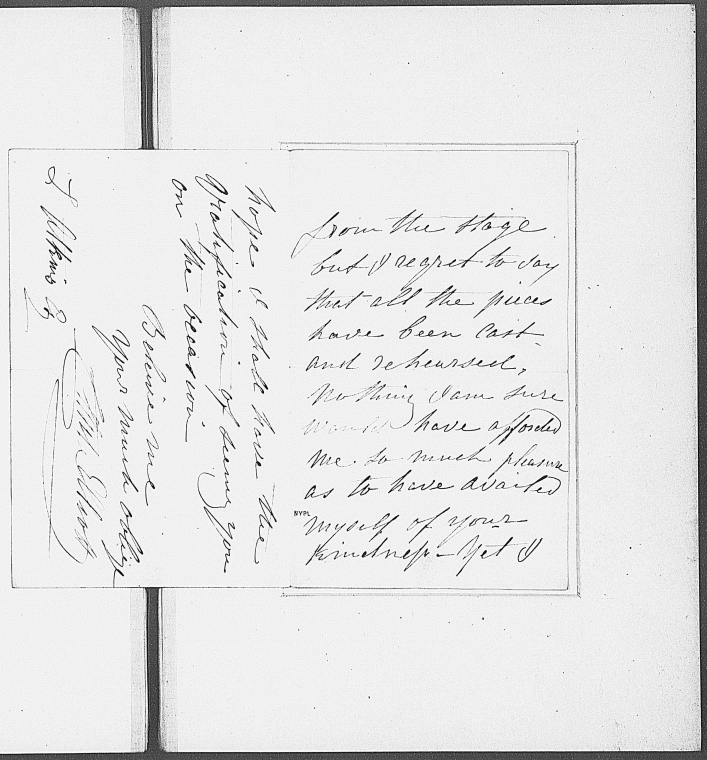 from the stage
but I regret to say
that all the pieces
have been cast
and rehearsed,
Nothing I am sure
would have afforded
me so much pleasure
as to have availed
NYPL
myself of your
kindness - Yet I
hope I shall have the
gratification of seeing you
on the occasion
Believe me
Your much oblige